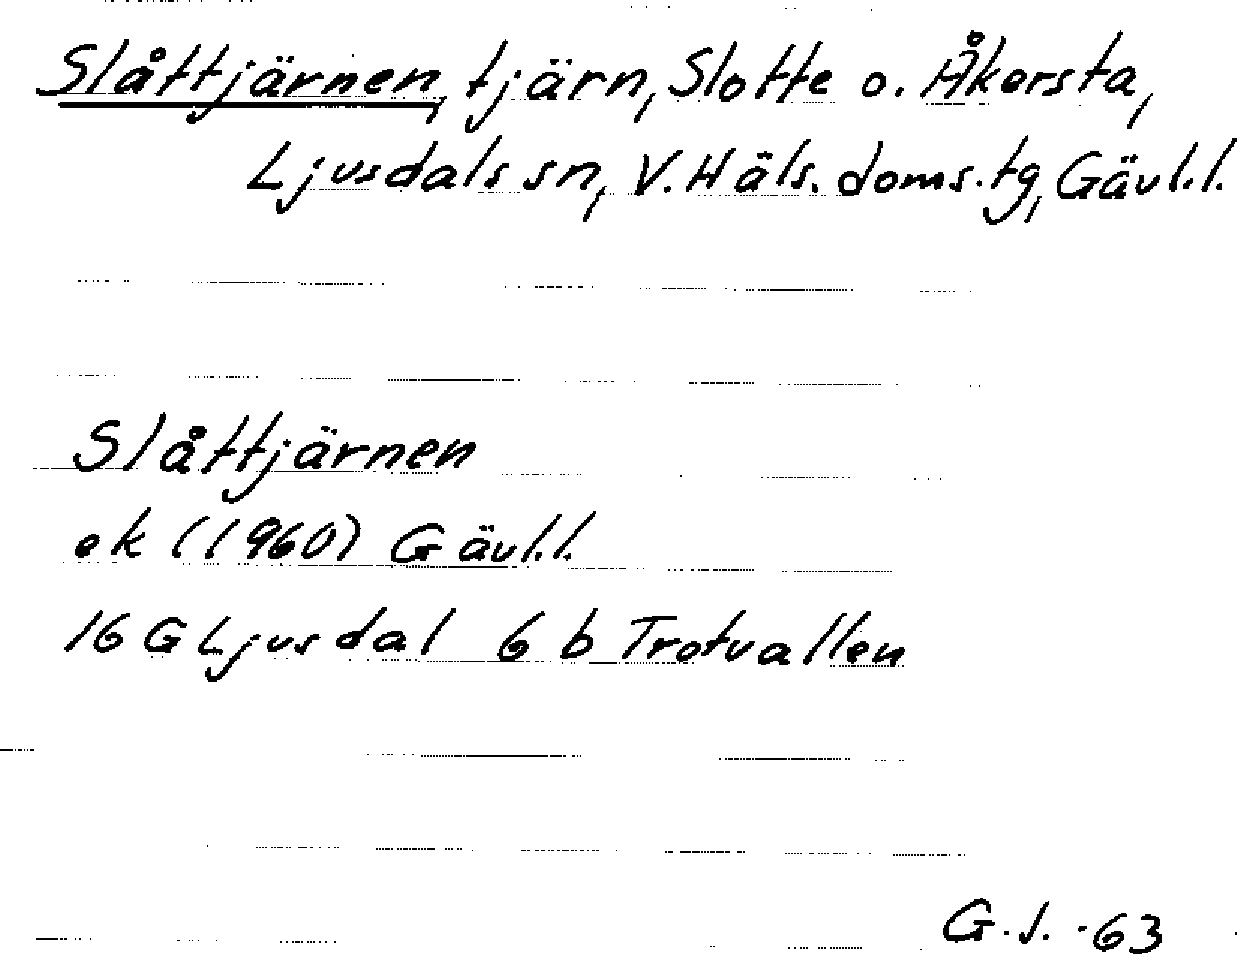 Slåttjärnen, tjärn, Slotte o. Åkersta,
Ljusdals sn, V. Häls. doms. tg, Gävl.l.
Slåttjärnen
ek (1960) Gävl.l.
16 G Ljusdal 6 b Trotvallen
G.J. -63